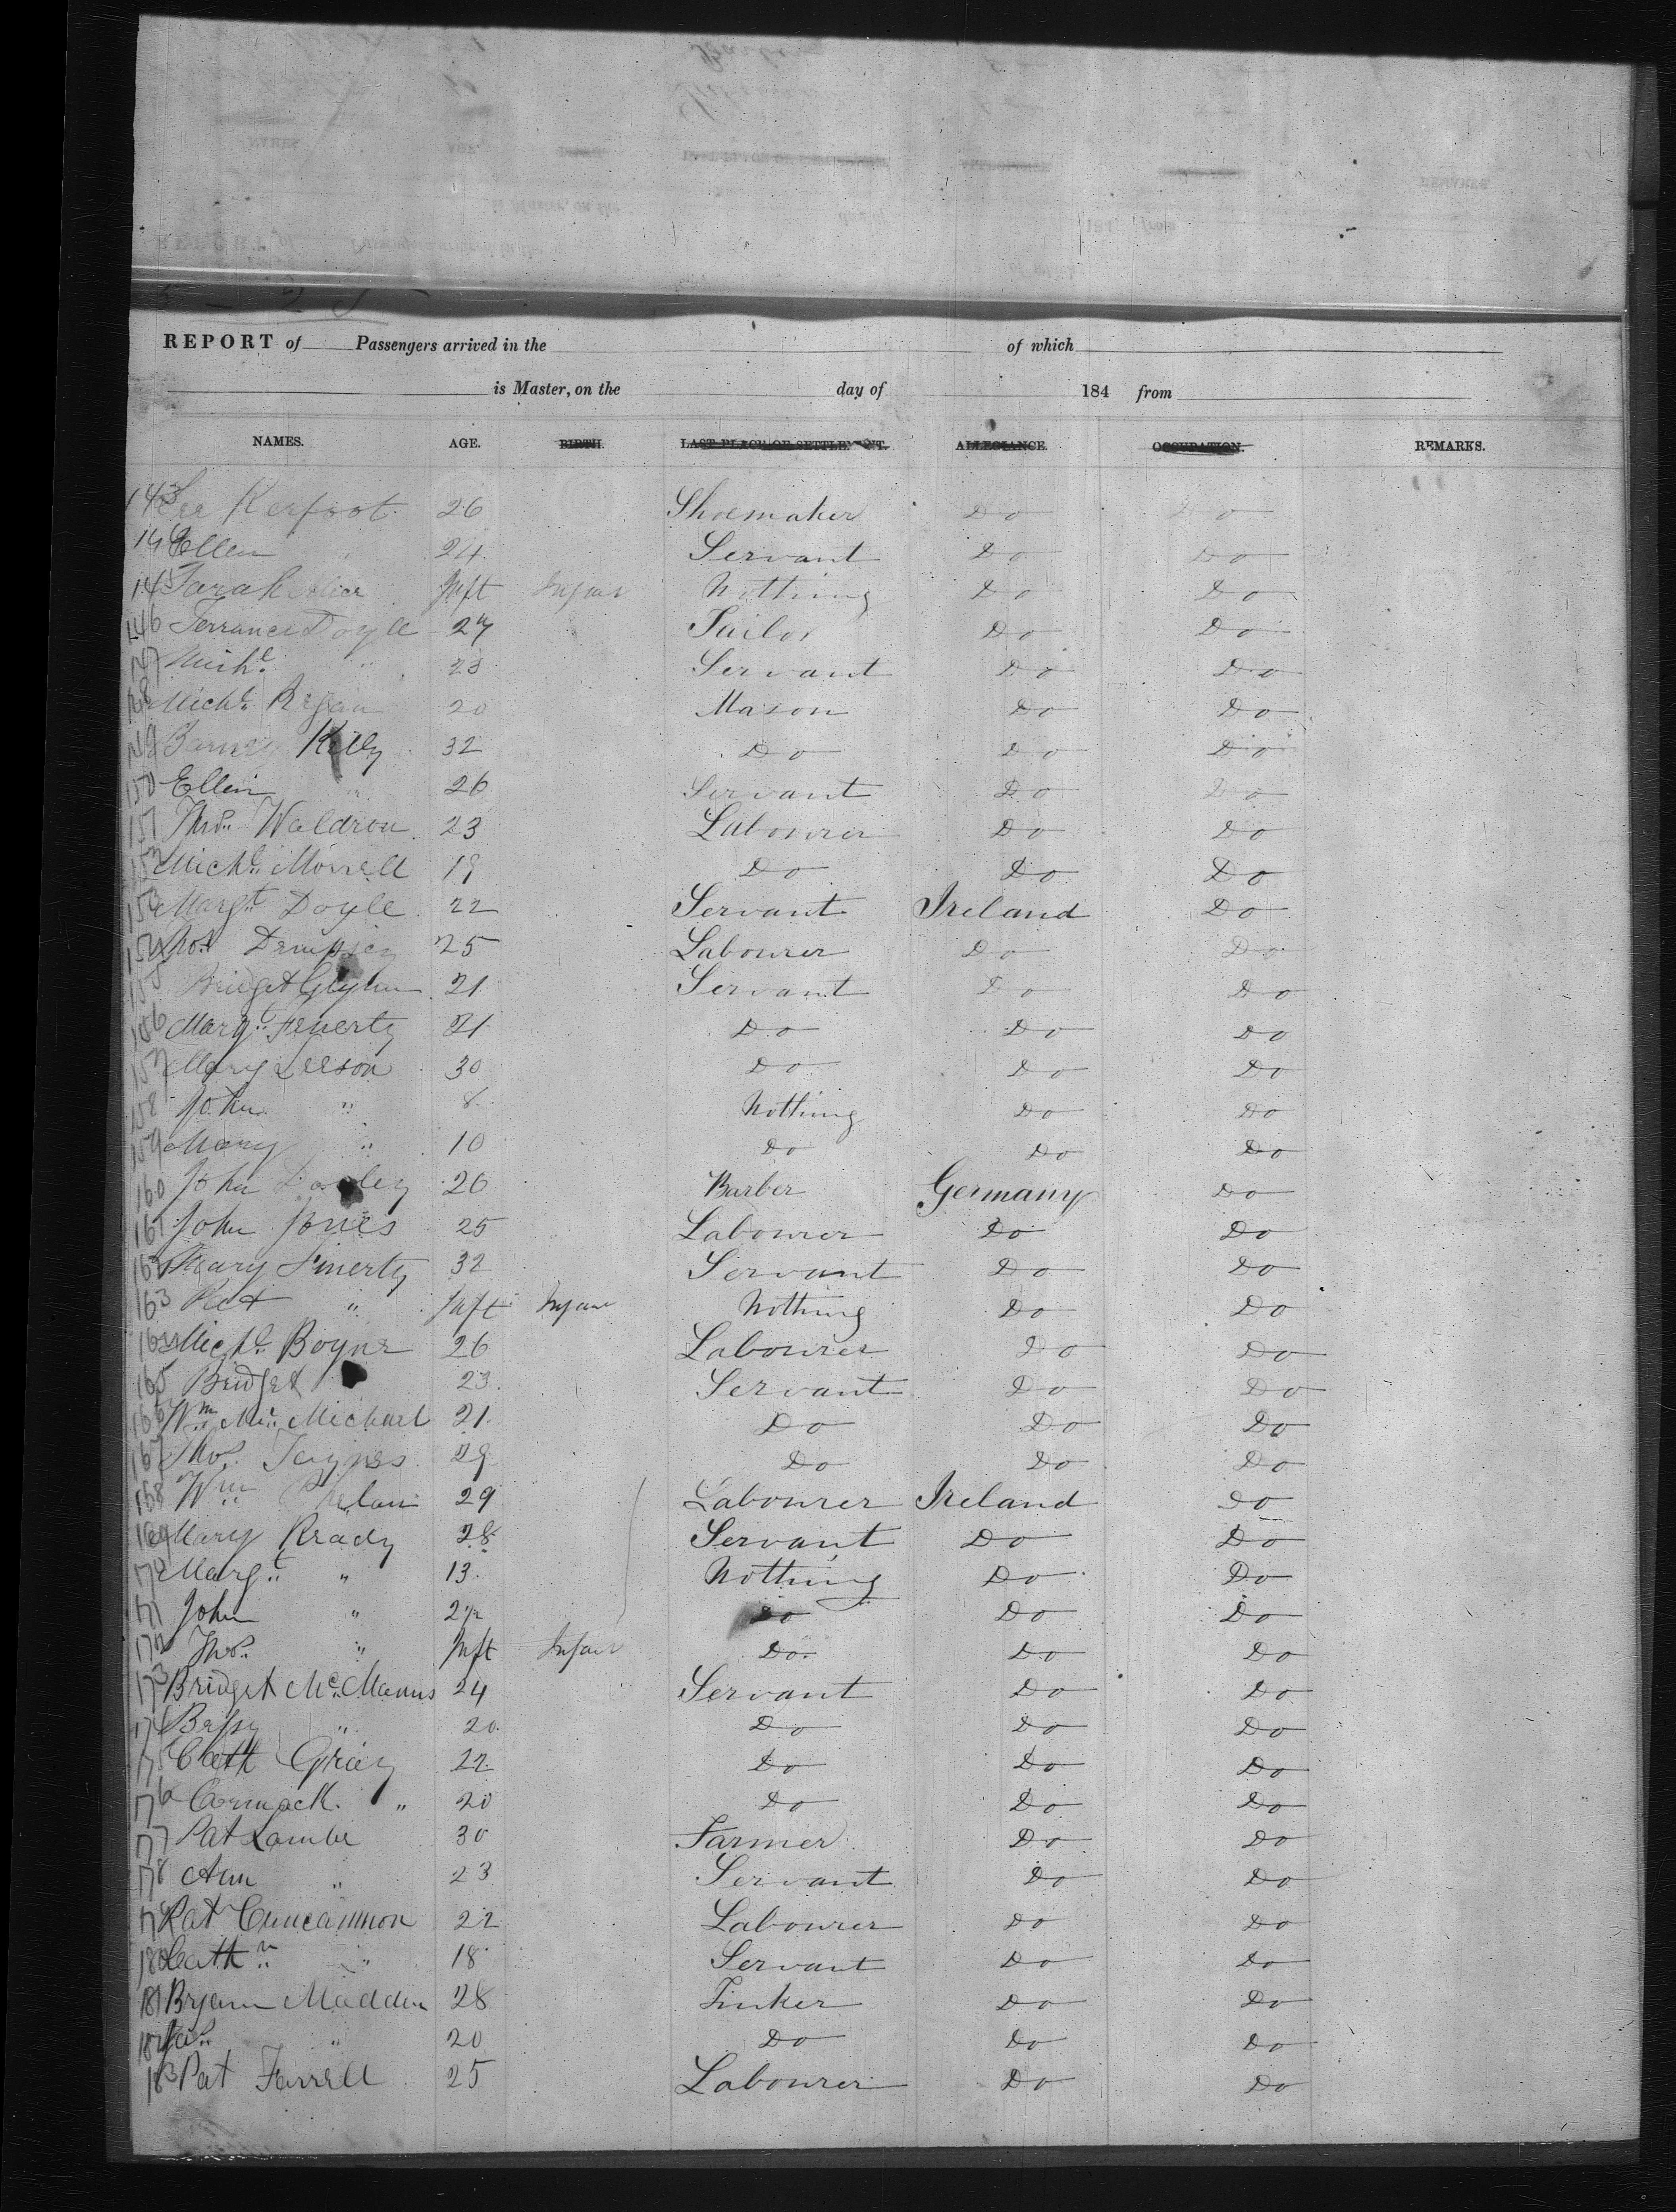 REPORT of Passengers arrived in the of which
is Master, on the day of 184 from
NAMES. AGE. BIRTH. LAST PLACE OF SETTLEMENT. ALLEGIANCE. OCCUPATION. REMARKS.
143 Kerfoot 26 Shoemaker Do Do
Ellen " 24 Servant Do Do
145 Sarah Inft Infant Nothing Do Do
146 Terrance Doyle 27 Tailor Do Do
147 Michl. " 23 Servant Do Do
148 Michl. Regan 20 Mason Do Do
149 Barney Kelly 32 Do Do Do
150 Ellen " 26 Servant Do Do
151 Thos. Waldron 23 Labourer Do Do
152 Michl. Morrell 19 Do Do Do
153 Margt. Doyle 22 Servant Ireland Do
154 Thos Dempsey 25 Labourer Do Do
155 Bridget Glynn 21 Servant Do Do
156 Margt. Fenerty 21 Do Do Do
157 Mary Leeson 30 Do Do Do
158 John " 8 Nothing Do Do
159 Mary " 10 Do Do Do
160 John 26 Barber Germany Do
161 John Jones 25 Labourer Do Do
162 Mary Finerty 32 Servant Do Do
163 Pat " Inft Infant Nothing Do Do
164 Michl. Boyne 26 Labourer Do Do
165 Bridget 23 Servant Do Do
166 Wm. Mc. Michael 21 Do Do Do
167 Thos. 29 Do Do Do
168 Wm. Phelan 29 Labourer Ireland Do
169 Mary Ready 28 Servant Do Do
170 Margt. " 13 Nothing Do Do
171 John " Do Do Do
172 Thos. " Inft Infant Do Do Do
173 Bridget McManus 24 Servant Do Do
174 Bessy " 20 Do Do Do
175 Cath Gray 22 Do Do Do
176 Cormack " 20 Do Do Do
177 Pat Lambe 30 Farmer Do Do
178 Ann " 23 Servant Do Do
179 Pat Cuncannon 22 Labourer Do Do
180 Cathn. " 18 Servant Do Do
181 Bryann Madden 28 Tinker Do Do
182 Jas. " 20 Do Do Do
183 Pat Farrell 25 Labourer Do Do